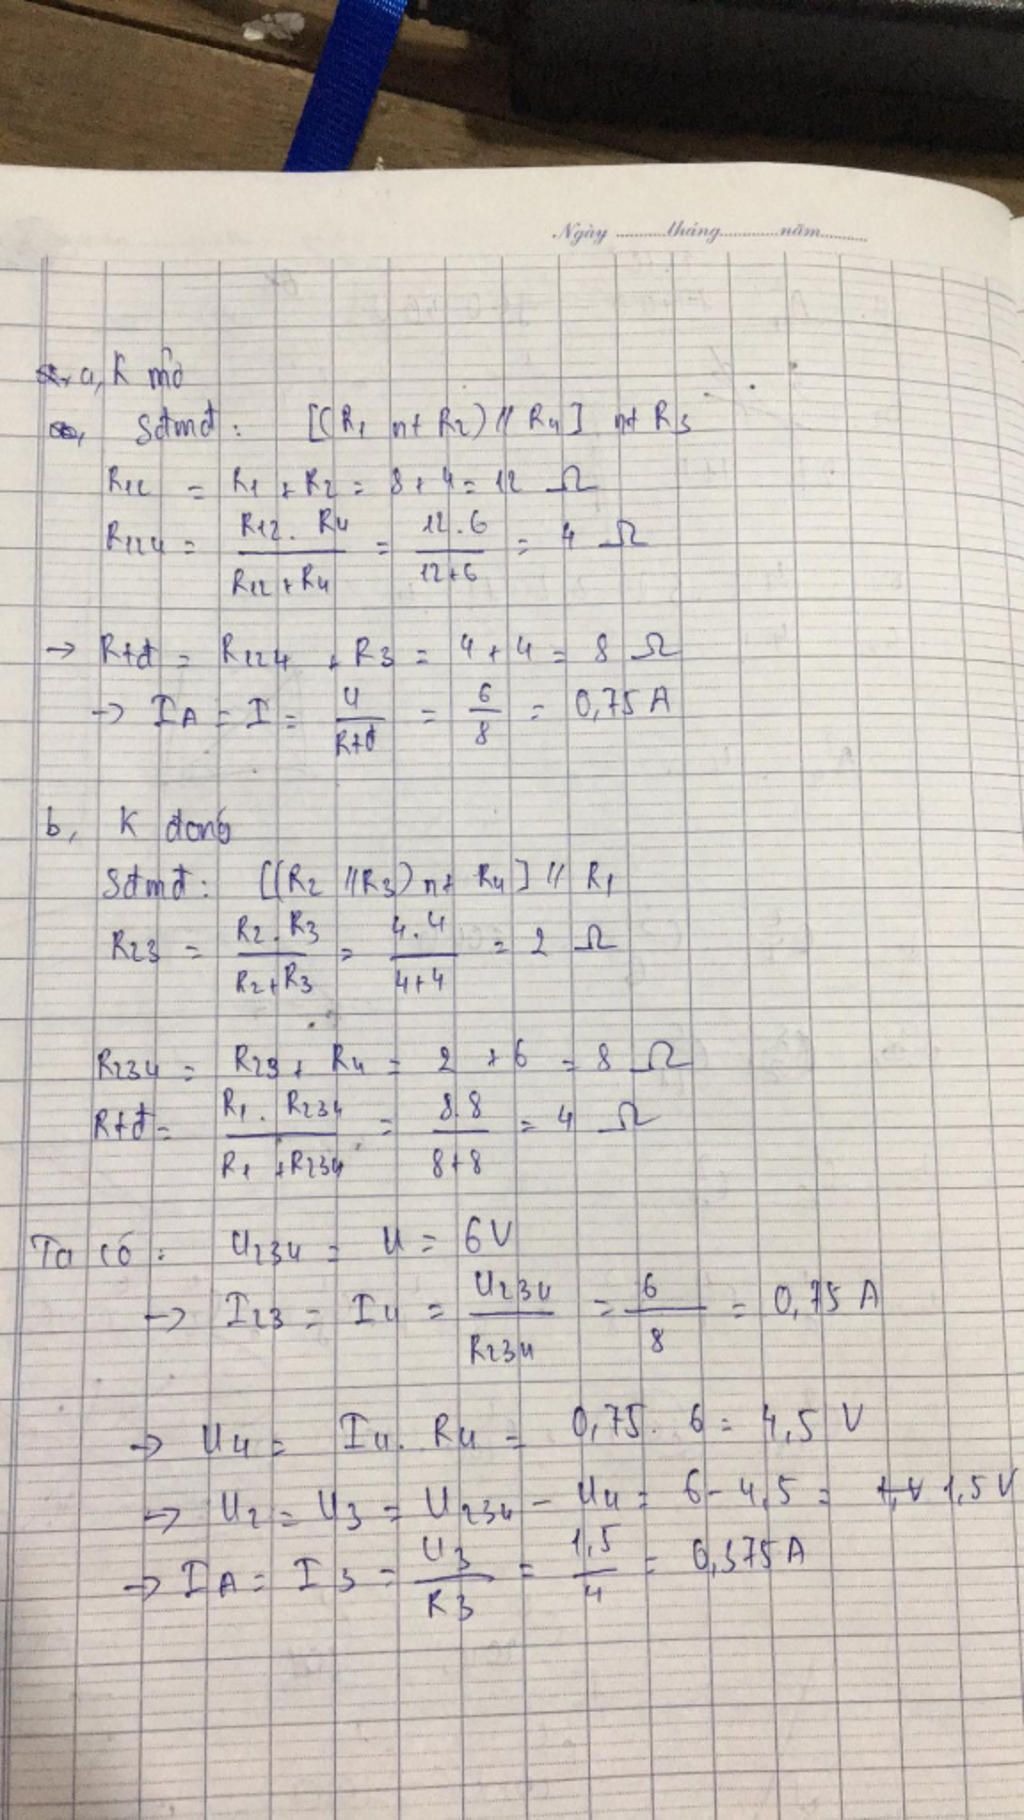 Ngày ..........tháng...........năm.........
a, K mở
Sđmđ : [(R1 nt R2) // R4] nt R3
R12 = R1 + R2 = 8 + 4 = 12 Ω
R124 = R12 . R4 / R12 + R4 = 12 . 6 / 12 + 6 = 4 Ω
→ Rtđ = R124 + R3 = 4 + 4 = 8 Ω
→ IA = I = U / Rtđ = 6 / 8 = 0,75 A
b, K đóng
Sđmđ : [(R2 // R3) nt R4] // R1
R23 = R2 . R3 / R2 + R3 = 4 . 4 / 4 + 4 = 2 Ω
R234 = R23 + R4 = 2 + 6 = 8 Ω
Rtđ = R1 . R234 / R1 + R234 = 8.8 / 8 + 8 = 4 Ω
Ta có : U234 = U = 6V
→ I23 = I4 = U234 / R234 = 6 / 8 = 0,75 A
→ U4 = I4 . R4 = 0,75 . 6 = 4,5 V
→ U2 = U3 = U234 - U4 = 6 - 4,5 = 1,5 V
→ IA = I3 = U3 / R3 = 1,5 / 4 = 0,375 A